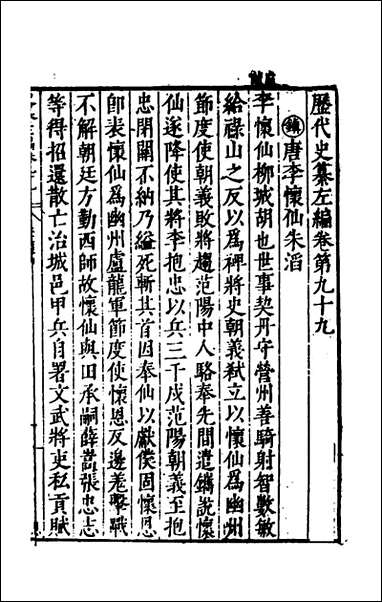 歷代史纂左編卷第九十九
鎮 唐李懷仙朱滔
李懷仙柳城胡也世事契丹守營州善騎射智數敏
給祿山之反以爲裨將史朝義弒立以懷仙爲幽州
節度使朝義敗將趨范陽中人駱奉先間遣鐫說懷
仙遂降使其將李抱忠以兵三千戍范陽朝義至抱
忠閉關不納乃縊死斬其首因奉仙以獻僕固懷恩
卽表懷仙爲幽州盧龍軍節度使懷恩反邊羌擊戰
不解朝廷方勤西師故懷仙與田承嗣薛嵩張忠志
等得招還散亡治城邑甲兵自署文武將吏私貢賦